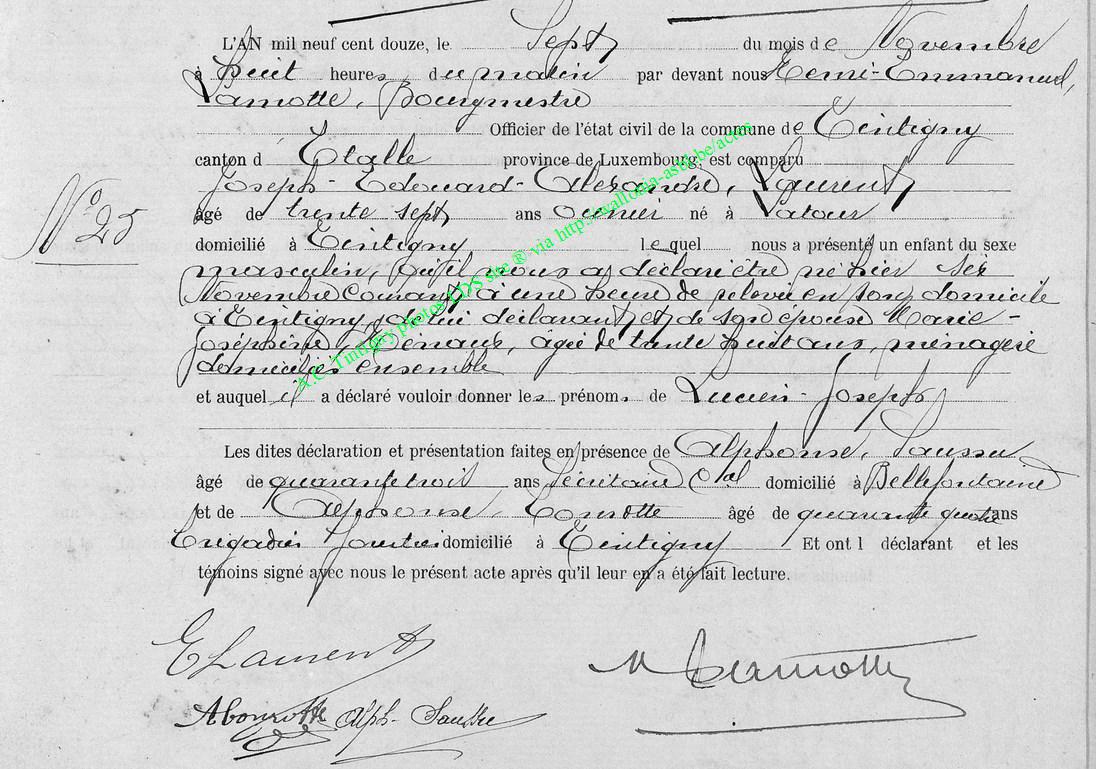 L'AN mil neuf cent douze, le Sept du mois de Novembre
à huit heures du matin par devant nous Remi-Emmanuel,
Lamotte, Bourgmestre
Officier de l'état civil de la commune de Tintigny
canton d Etalle province de Luxembourg, est comparu
Joseph-Edouard-Alexandre, Laurent
N° 25
âgé de trente sept ans ouvrier né à Latour
domicilié à Tintigny lequel nous a présenté un enfant du sexe
masculin, qu'il nous a déclaré être né hier six
Novembre courant à une heure de relevée en son domicile
à Tintigny, de lui déclarant et de son épouse Marie-
Joséphine, âgée de trente huit ans, ménagère
domiciliés ensemble
et auquel il a déclaré vouloir donner les prénoms de Lucien-Joseph
Les dites déclaration et présentation faites en présence de Alphonse, Saussu
âgé de quarante trois ans Secrétaire Cal domicilié à Bellefontaine
et de Alphonse, âgé de quarante quatre ans
Brigadier forestier domicilié à Tintigny Et ont l déclarant et les
témoins signé avec nous le présent acte après qu'il leur en a été fait lecture.
A.C. Tintigny photos CDS site ® via http://wallonia-asbl.be/actes
E Laurent
Lamotte
Alph-